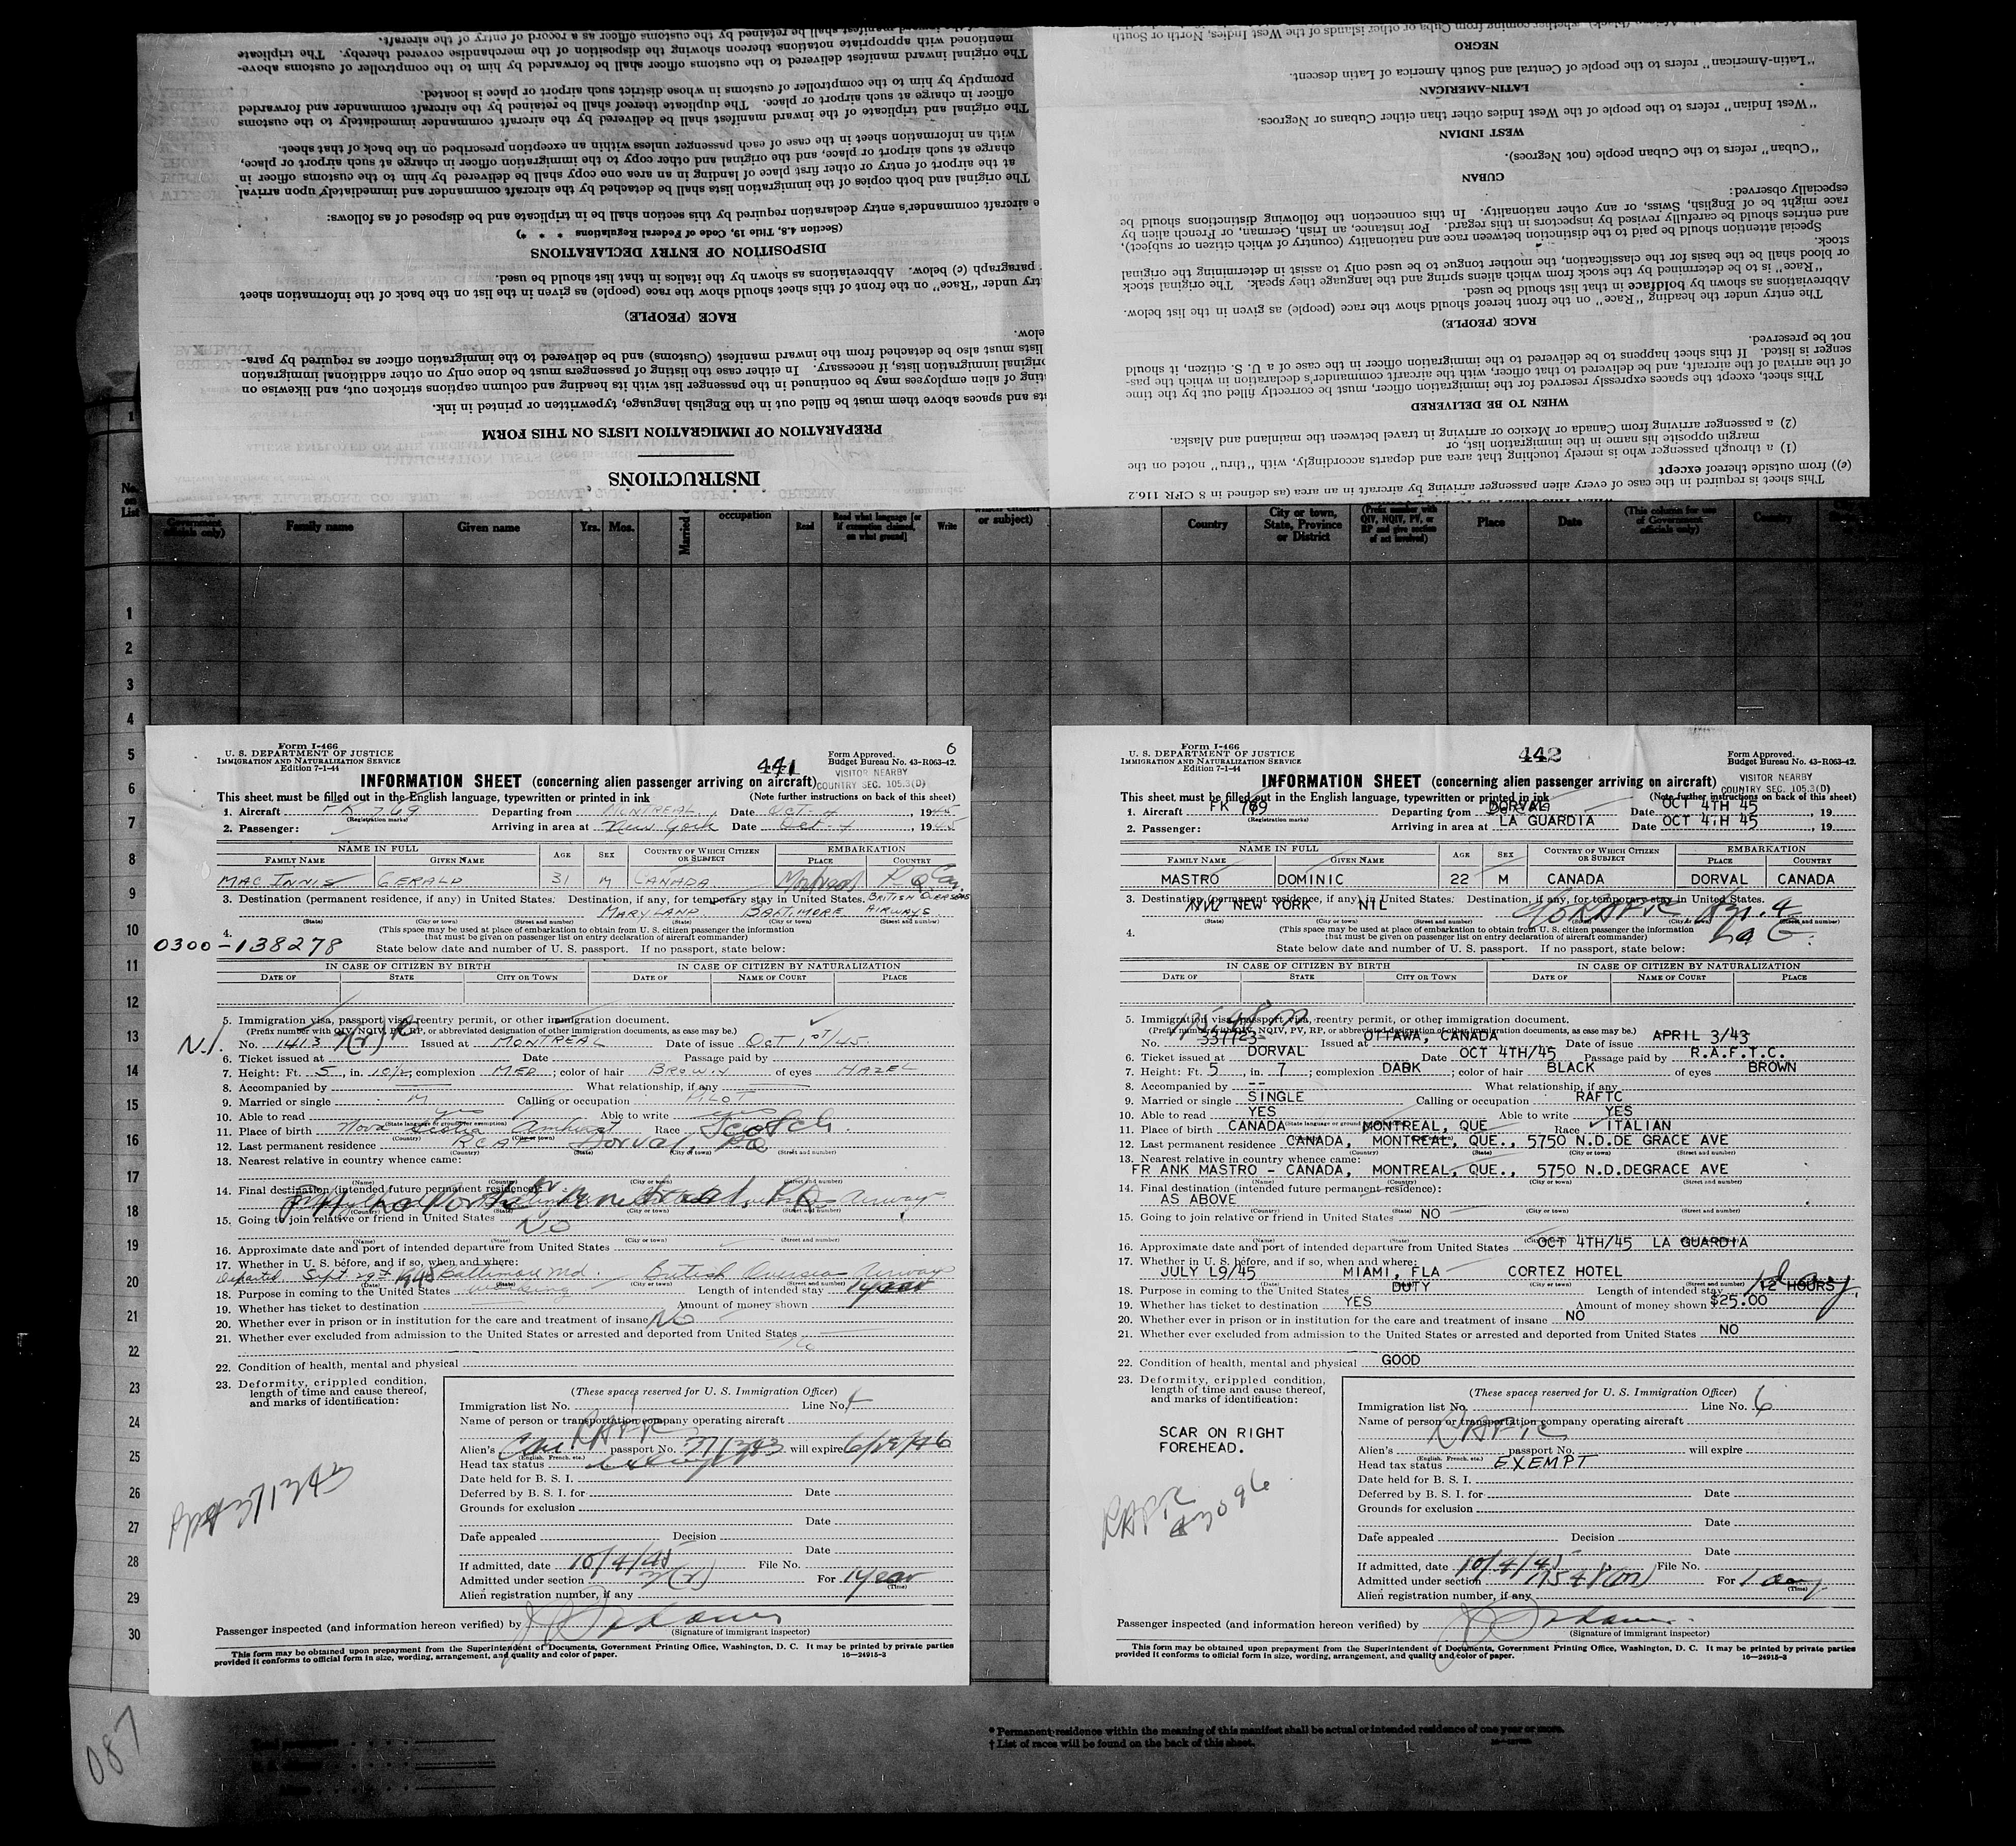 INSTRUCTIONS
PREPARATION OF IMMIGRATION LISTS ON THIS FORM
and spaces above them must be filled out in the English language, typewritten or printed in ink.
of alien employees may be continued in the passenger list with its heading and column captions stricken out, and likewise on
original immigration lists, if necessary. In either case the listing of passengers must be done only on other additional immigration
lists must also be detached from the inward manifest (Customs) and be delivered to the immigration officer as required by para-
RACE (PEOPLE)
under "Race" on the front of this sheet should show the race (people) as given in the list on the back of the information sheet
paragraph (c) below. Abbreviations as shown by the italics in that list should be used.
DISPOSITION OF ENTRY DECLARATIONS
(Section 4.8, Title 19, Code of Federal Regulations * * *)
aircraft commander's entry declaration required by this section shall be in triplicate and be disposed of as follows:
The original and both copies of the immigration lists shall be detached by the aircraft commander and immediately upon arrival
at the airport of entry or other first place of landing in an area one copy shall be delivered by him to the customs officer in
charge at such airport or place, and the original and other copy to the immigration officer in charge at such airport or place,
with an information sheet in the case of each passenger unless within an exception prescribed on the back of that sheet.
The original and triplicate of the inward manifest shall be delivered by the aircraft commander immediately to the customs
officer in charge at such airport or place. The duplicate thereof shall be retained by the aircraft commander and forwarded
promptly by him to the comptroller of customs in whose district such airport or place is located.
The original inward manifest delivered to the customs officer shall be forwarded by him to the comptroller of customs above-
mentioned with appropriate notations thereon showing the disposition of the merchandise covered thereby. The triplicate
manifest shall be retained by the customs officer as a record of entry of the aircraft.
This sheet is required in the case of every alien passenger arriving by aircraft in an area (as defined in 8 CFR 116.2
(e)) from outside thereof except
(1) a through passenger who is merely touching that area and departs accordingly, with "thru" noted on the
margin opposite his name in the immigration list, or
(2) a passenger arriving from Canada or Mexico or arriving in travel between the mainland and Alaska.
WHEN TO BE DELIVERED
This sheet, except the spaces expressly reserved for the immigration officer, must be correctly filled out by the time
of the arrival of the aircraft, and be delivered to that officer, with the aircraft commander's declaration in which the pas-
senger is listed. If this sheet happens to be delivered to the immigration officer in the case of a U. S. citizen, it should
not be preserved.
RACE (PEOPLE)
The entry under the heading "Race" on the front hereof should show the race (people) as given in the list below.
Abbreviations as shown by boldface in that list should be used.
"Race" is to be determined by the stock from which aliens spring and the language they speak. The original stock
or blood shall be the basis for the classification, the mother tongue to be used only to assist in determining the original
stock.
Special attention should be paid to the distinction between race and nationality (country of which citizen or subject),
and entries should be carefully revised by inspectors in this regard. For instance, an Irish, German, or French alien by
race might be of English, Swiss, or any other nationality. In this connection the following distinctions should be
especially observed:
CUBAN
"Cuban" refers to the Cuban people (not Negroes).
WEST INDIAN
"West Indian" refers to the people of the West Indies other than either Cubans or Negroes.
LATIN-AMERICAN
"Latin-American" refers to the people of Central and South America of Latin descent.
NEGRO
coming from Cuba or other islands of the West Indies, North or South
No. on List
Government officials only)
Family name
Given name
Yrs. Mos.
Married
occupation
Read
Read what language [or if exemption claimed, on what ground]
Write
or subject)
Country
City or town, State, Province or District
(Prefix number with QIV, NQIV, PV, or RP and give section of act involved)
Place
Date
(This column for use of Government officials only)
Country
1
2
3
4
5
6
7
8
9
10
11
12
13
14
15
16
17
18
19
20
21
22
23
24
25
26
27
28
29
30
Form I-466
U. S. DEPARTMENT OF JUSTICE
IMMIGRATION AND NATURALIZATION SERVICE
Edition 7-1-44
441
6
Form Approved.
Budget Bureau No. 43-R063-42.
VISITOR NEARBY
COUNTRY SEC. 105.3(D)
INFORMATION SHEET (concerning alien passenger arriving on aircraft)
This sheet must be filled out in the English language, typewritten or printed in ink (Note further instructions on back of this sheet)
1. Aircraft FK 769 (Registration marks) Departing from MONTREAL Date OCT 4, 1945
2. Passenger: Arriving in area at New York Date Oct 4, 1945
NAME IN FULL AGE SEX COUNTRY OF WHICH CITIZEN OR SUBJECT EMBARKATION
FAMILY NAME GIVEN NAME PLACE COUNTRY
MAC INNIS GERALD 31 M CANADA Montreal P Q Can.
3. Destination (permanent residence, if any) in United States. Destination, if any, for temporary stay in United States. BRITISH OVERSEAS
MARYLAND BALTIMORE AIRWAYS
(State) (City or town) (Street and number) (State) (City or town) (Street and number)
4. (This space may be used at place of embarkation to obtain from U. S. citizen passenger the information
that must be given on passenger list on entry declaration of aircraft commander)
0300-138278
State below date and number of U. S. passport. If no passport, state below:
IN CASE OF CITIZEN BY BIRTH IN CASE OF CITIZEN BY NATURALIZATION
DATE OF STATE CITY OR TOWN DATE OF NAME OF COURT PLACE
5. Immigration visa, passport visa, reentry permit, or other immigration document.
(Prefix number with QIV, NQIV, PV, RP, or abbreviated designation of other immigration documents, as case may be.)
N.I.
No. 1413 Issued at MONTREAL Date of issue OCT 1ST/45
6. Ticket issued at Date Passage paid by
7. Height: Ft. 5, in. 10½; complexion MED; color of hair BROWN of eyes HAZEL
8. Accompanied by What relationship, if any
9. Married or single M Calling or occupation PILOT
10. Able to read yes Able to write yes
(State language or ground for exemption)
11. Place of birth Nova Scotia Amherst Race Scotch
(Country) (City or town)
12. Last permanent residence RCAF Dorval, PQ
(Country) (State) (City or town) (Street and number)
13. Nearest relative in country whence came:
(Name) (Country) (City or town) (Street and number)
14. Final destination (intended future permanent residence):
Montreal, PQ. Airways
(Country) (State) (City or town) (Street and number)
15. Going to join relative or friend in United States No
(Name) (State) (City or town) (Street and number)
16. Approximate date and port of intended departure from United States
17. Whether in U. S. before, and if so, when and where:
Departed Sept 29th 1945 Baltimore Md. British Overseas Airways
(Date) (State) (City or town) (Street and number)
18. Purpose in coming to the United States working Length of intended stay 1 year
19. Whether has ticket to destination Amount of money shown
20. Whether ever in prison or in institution for the care and treatment of insane No
21. Whether ever excluded from admission to the United States or arrested and deported from United States
No
22. Condition of health, mental and physical
23. Deformity, crippled condition,
length of time and cause thereof,
and marks of identification:
(These spaces reserved for U. S. Immigration Officer)
Immigration list No. Line No.
Name of person or transportation company operating aircraft
RAFTC
Alien's Can passport No. will expire
(English, French, etc.)
Head tax status
Date held for B. S. I.
Deferred by B. S. I. for Date
Grounds for exclusion
Date
Date appealed Decision
Date
If admitted, date 10/4/45 File No.
Admitted under section For 1 year
(Time)
Alien registration number, if any
Passenger inspected (and information hereon verified) by
(Signature of immigrant inspector)
This form may be obtained upon prepayment from the Superintendent of Documents, Government Printing Office, Washington, D. C. It may be printed by private parties
provided it conforms to official form in size, wording, arrangement, and quality and color of paper. 16—24915-3
Form I-466
U. S. DEPARTMENT OF JUSTICE
IMMIGRATION AND NATURALIZATION SERVICE
Edition 7-1-44
442
Form Approved.
Budget Bureau No. 43-R063-42.
VISITOR NEARBY
COUNTRY SEC. 105.3(D)
INFORMATION SHEET (concerning alien passenger arriving on aircraft)
This sheet must be filled out in the English language, typewritten or printed in ink (Note further instructions on back of this sheet)
1. Aircraft FK 769 (Registration marks) Departing from DORVAL Date OCT 4TH 45, 19
2. Passenger: Arriving in area at LA GUARDIA Date OCT 4TH 45, 19
NAME IN FULL AGE SEX COUNTRY OF WHICH CITIZEN OR SUBJECT EMBARKATION
FAMILY NAME GIVEN NAME PLACE COUNTRY
MASTRO DOMINIC 22 M CANADA DORVAL CANADA
3. Destination (permanent residence, if any) in United States. Destination, if any, for temporary stay in United States.
NEW YORK NIL
(State) (City or town) (Street and number) (State) (City or town) (Street and number)
4. (This space may be used at place of embarkation to obtain from U. S. citizen passenger the information
that must be given on passenger list on entry declaration of aircraft commander)
La G.
State below date and number of U. S. passport. If no passport, state below:
IN CASE OF CITIZEN BY BIRTH IN CASE OF CITIZEN BY NATURALIZATION
DATE OF STATE CITY OR TOWN DATE OF NAME OF COURT PLACE
5. Immigration visa, passport visa, reentry permit, or other immigration document.
(Prefix number with QIV, NQIV, PV, RP, or abbreviated designation of other immigration documents, as case may be.)
No. 337723 Issued at OTTAWA, CANADA Date of issue APRIL 3/43
6. Ticket issued at DORVAL Date OCT 4TH/45 Passage paid by R.A.F.T.C.
7. Height: Ft. 5, in. 7; complexion DARK; color of hair BLACK of eyes BROWN
8. Accompanied by -- What relationship, if any
9. Married or single SINGLE Calling or occupation RAFTC
10. Able to read YES Able to write YES
(State language or ground for exemption)
11. Place of birth CANADA MONTREAL, QUE Race ITALIAN
12. Last permanent residence CANADA, MONTREAL, QUE., 5750 N.D.DE GRACE AVE
(Country) (State) (City or town) (Street and number)
13. Nearest relative in country whence came:
FR ANK MASTRO - CANADA, MONTREAL, QUE., 5750 N.D.DEGRACE AVE
(Name) (Country) (City or town) (Street and number)
14. Final destination (intended future permanent residence):
AS ABOVE
(Country) (State) (City or town) (Street and number)
15. Going to join relative or friend in United States NO
(Name) (State) (City or town) (Street and number)
16. Approximate date and port of intended departure from United States OCT 4TH/45 LA GUARDIA
17. Whether in U. S. before, and if so, when and where:
JULY L9/45 MIAMI, FLA CORTEZ HOTEL
(Date) (State) (City or town) (Street and number)
18. Purpose in coming to the United States DUTY Length of intended stay 12 HOURS 1 day
19. Whether has ticket to destination YES Amount of money shown $25.00
20. Whether ever in prison or in institution for the care and treatment of insane NO
21. Whether ever excluded from admission to the United States or arrested and deported from United States NO
22. Condition of health, mental and physical GOOD
23. Deformity, crippled condition,
length of time and cause thereof,
and marks of identification:
SCAR ON RIGHT
FOREHEAD.
RAFTC
(These spaces reserved for U. S. Immigration Officer)
Immigration list No. Line No. 6
Name of person or transportation company operating aircraft
RAFTC
Alien's passport No. will expire
(English, French, etc.)
Head tax status EXEMPT
Date held for B. S. I.
Deferred by B. S. I. for Date
Grounds for exclusion
Date
Date appealed Decision
Date
If admitted, date 10/4/45 File No.
Admitted under section 175 48(M) For 1 day
(Time)
Alien registration number, if any
Passenger inspected (and information hereon verified) by
(Signature of immigrant inspector)
This form may be obtained upon prepayment from the Superintendent of Documents, Government Printing Office, Washington, D. C. It may be printed by private parties
provided it conforms to official form in size, wording, arrangement, and quality and color of paper. 16—24915-3
* Permanent residence within the meaning of this manifest shall be actual or intended residence of one year or more.
† List of races will be found on the back of this sheet.
087